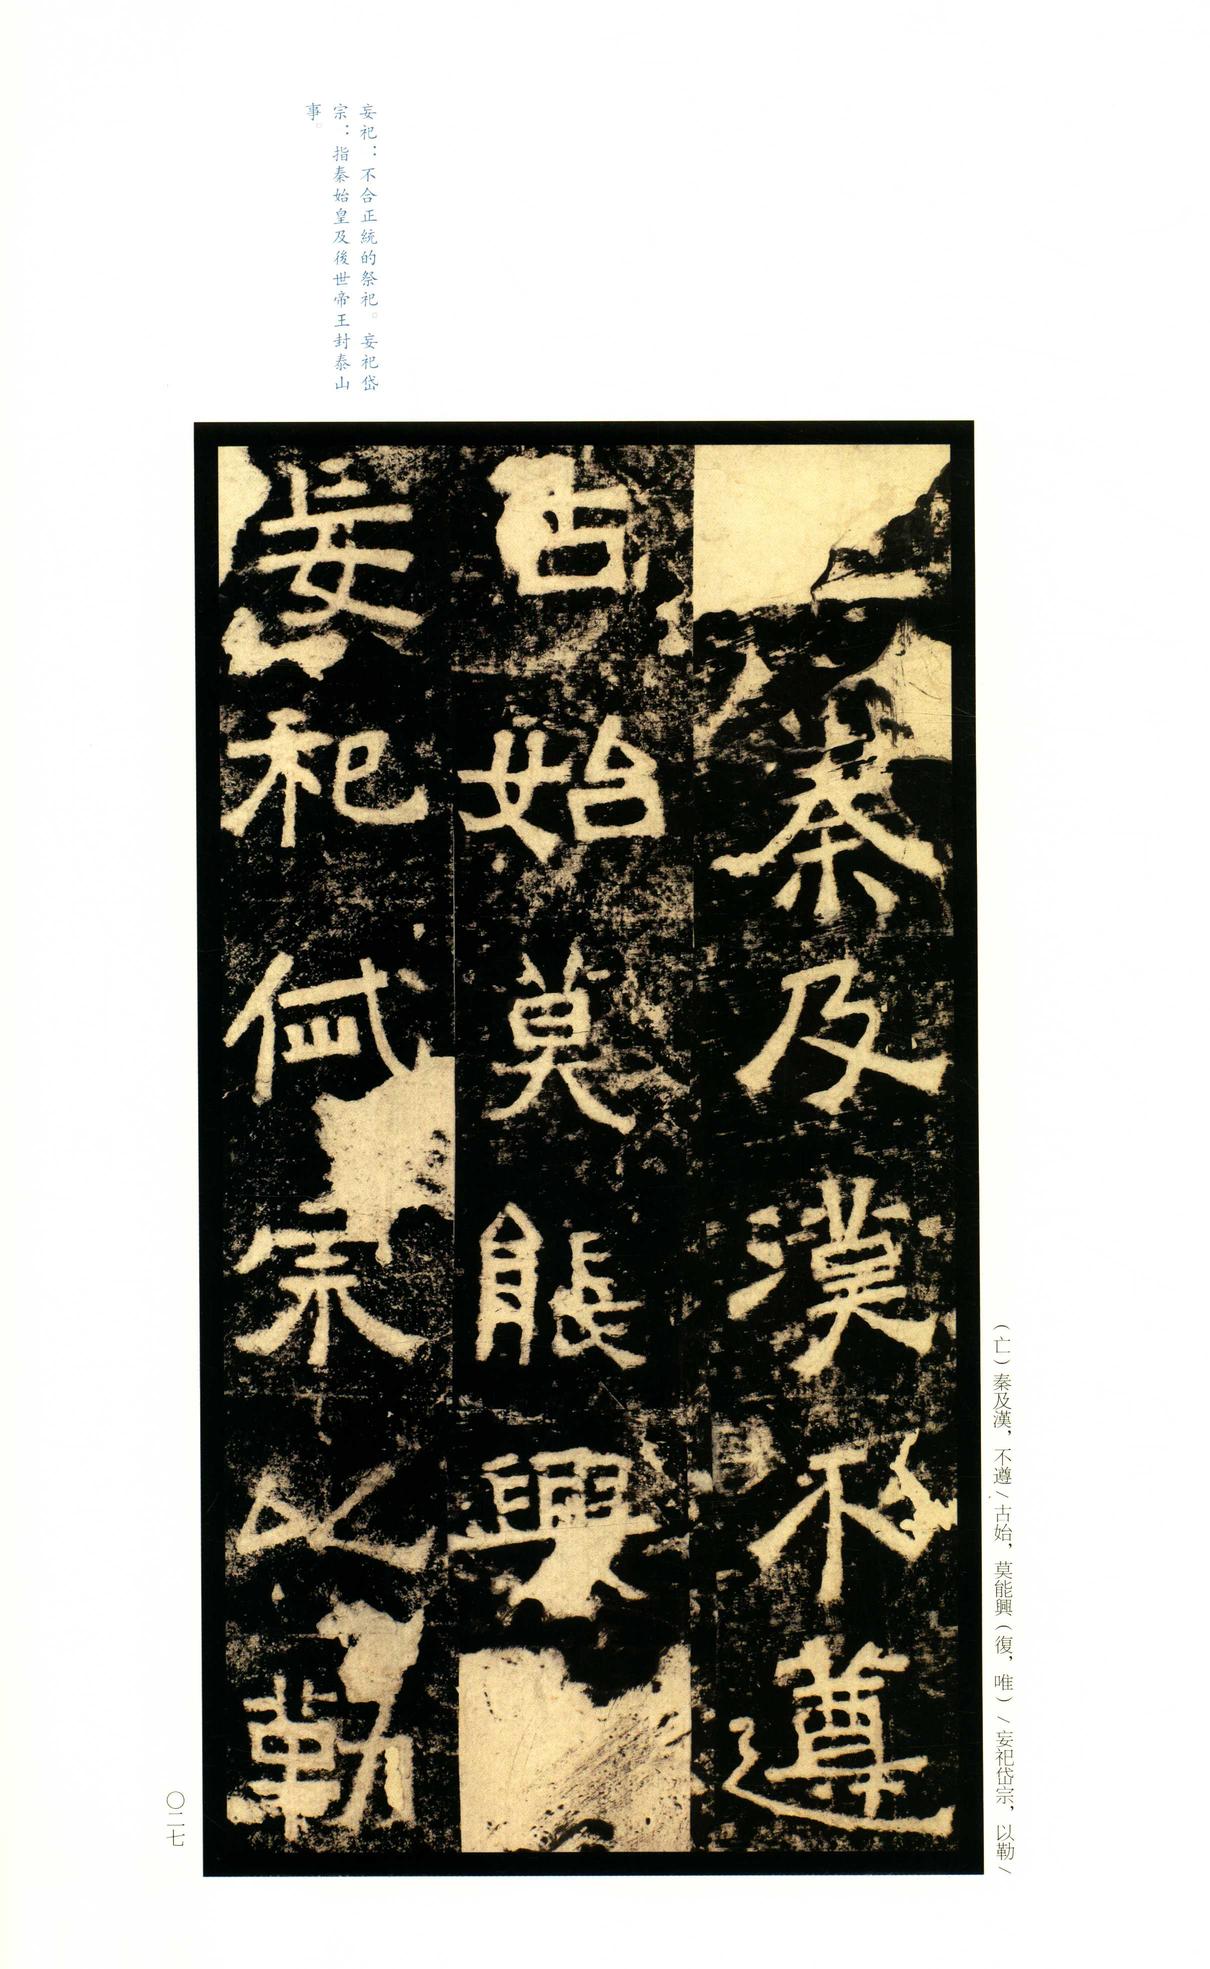 妄祀：不合正統的祭祀。妄祀岱
宗：指秦始皇及後世帝王封泰山
事。
秦及漢不遵
古始莫能興
妄祀岱宗以勒
（亡）秦及漢，不遵／古始，莫能興（復，唯）／妄祀岱宗，以勒／
〇二七